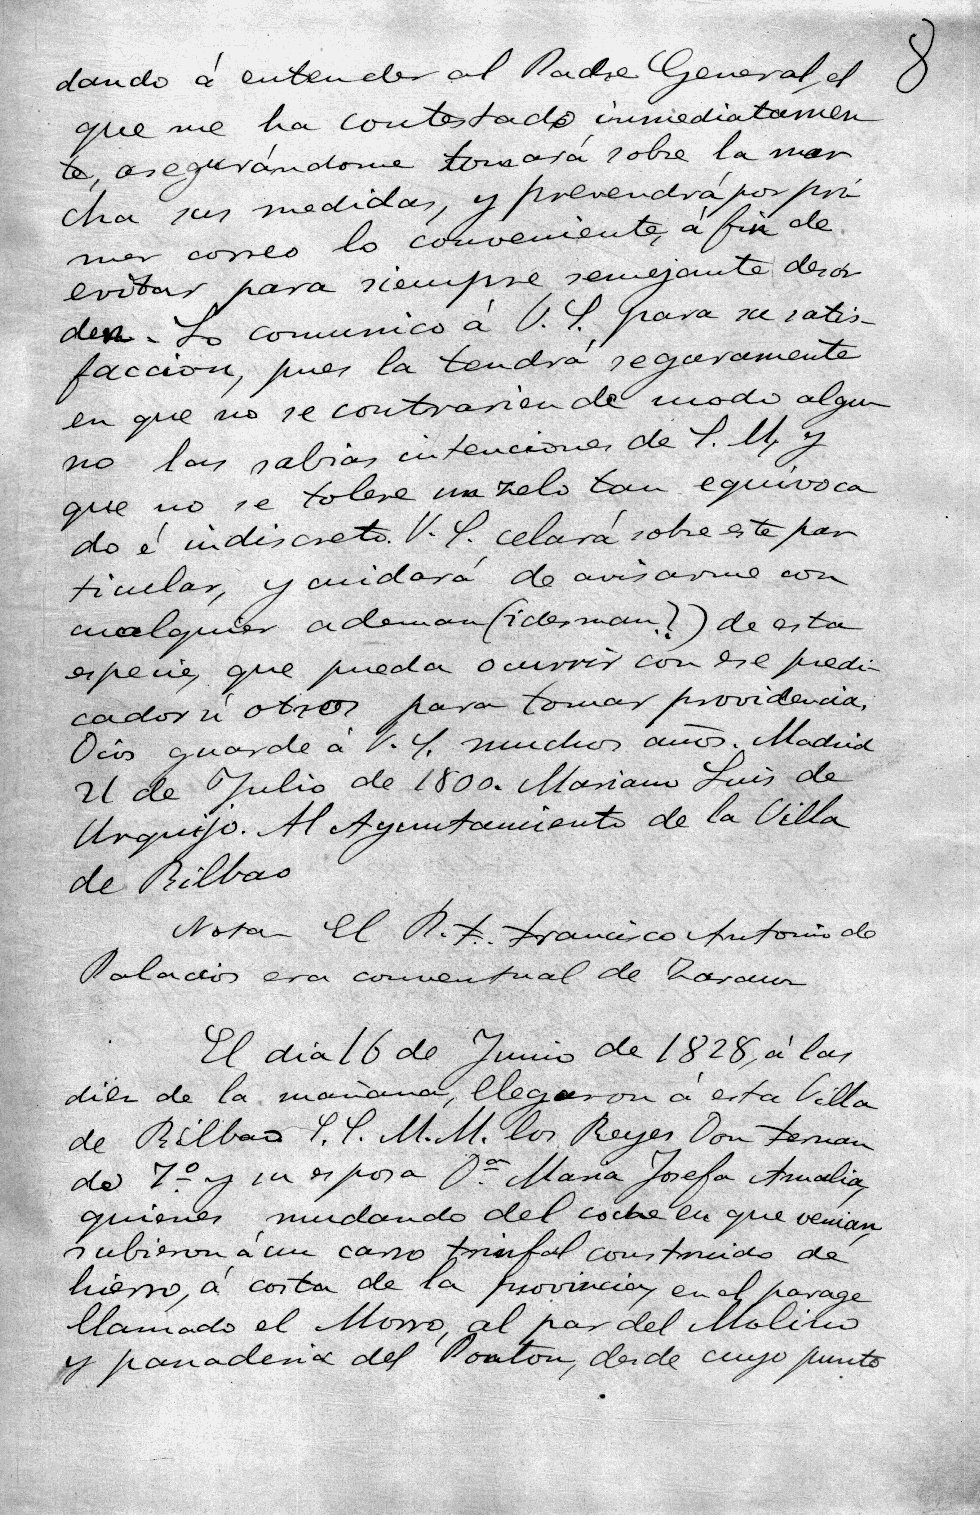 8
dando á entender al Padre General, el
que me ha contestado inmediatamen
te, asegurándome tomará sobre la mar
cha sus medidas, y prevendrá por pri
mer correo lo conveniente, á fin de
evitar para siempre semejante desór
den. Lo comunico á V. S. para su satis-
faccion, pues la tendrá seguramente
en que no se contrarien de modo algu
no las sabias intenciones de S. M, y
que no se tolere un zelo tan equivoca
do é indiscreto. V. S. celará sobre este par
ticular, y cuidará de avisarme con
cualquier ademan (idesman?) de esta
especie, que pueda ocurrir con ese predi-
cador ú otros para tomar providencia.
Dios guarde á V. S. muchos años. Madrid
21 de Julio de 1800. Mariano Luis de
Urquijo. Al Ayuntamiento de la Villa
de Bilbao
Nota El R. F. Francisco Antonio de
Palacios era conventual de Zarauz
El dia 16 de Junio de 1828, á las
diez de la mañana, llegaron á esta Villa
de Bilbao S. S. M. M. los Reyes Don Fernan
do 7º y su esposa Dª Maria Josefa Amalia,
quienes mudando del coche en que venian,
subieron á un carro triufal construido de
hierro, á costa de la provincia, en el parage
llamado el Morro, al par del Molino
y panaderia del Ponton, desde cuyo punto